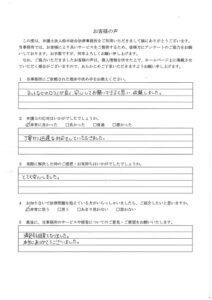 お客様の声
この度は、弁護士法人春田総合法律事務所をご利用いただきまして誠にありがとうございます。
当事務所では、お客様により良いサービスをご提供するため、皆様方にアンケートのご協力をお願い
しております。お手数ですが、何卒よろしくお願い申し上げます。
なお、ご協力いただきましたお客様の声は、個人情報を伏せた上で、ホームページ上に掲載させ
ていただく場合がございますので、あらかじめご了承くださいますようお願い申し上げます。
1 当事務所にご依頼された理由や決め手をお教えください。
2 弁護士の対応はいかがでしたか。
非常に良かった 良かった 普通 悪かった
丁寧かつ迅速な対応をしていただきました。
3 実際に解決した時のご感想・お気持ちはいかがでしたでしょうか。
とても安心しました。
4 お知り合いで法律問題を抱えている方がいらっしゃいましたら、ご紹介したいと思いますか。
非常に思う 思う あまり思わない 思わない
5 最後に、当事務所のサービスや接客についてのご意見・ご要望をお願いいたします。
本当にありがとうございました。